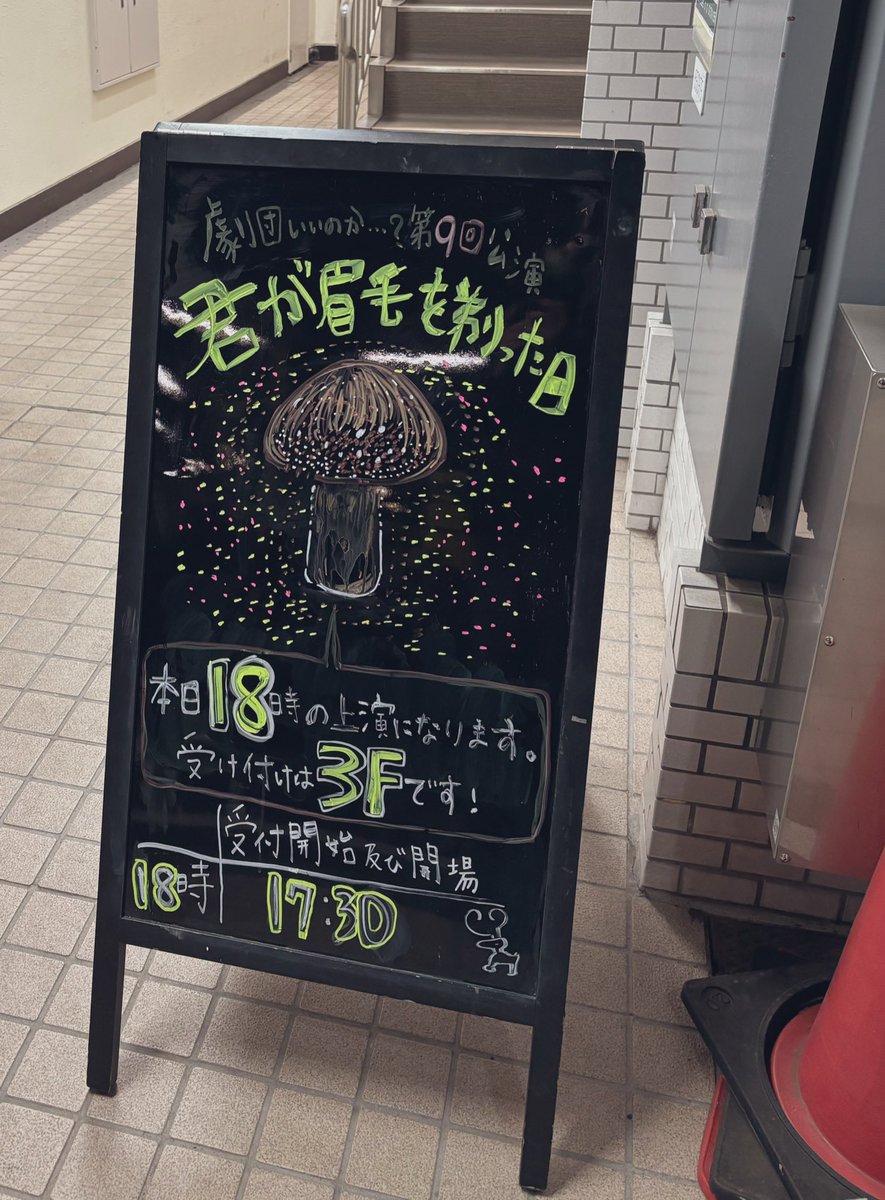 劇団いいのか…?第9回公演
君が眉毛を剃った日
本日18時の上演になります。
受け付けは3Fです!
受付開始及び開場
18時 17:30